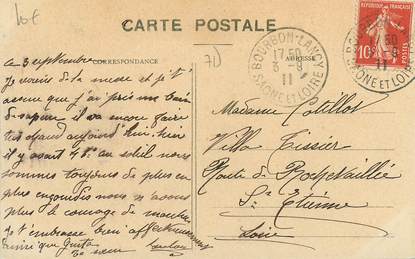 10€
CARTE POSTALE
CORRESPONDANCE
ADRESSE
71
BOURBON-LANCY
17 50
3 -9
11
SAONE ET LOIRE
REPUBLIQUE FRANÇAISE
10
POSTES
ce 3 septembre
Je viens de la messe et je t'
assure que j'ai pris un bain
de vapeur il va encore faire
chaud aujourd'hui hier
il y avait 48° au soleil nous
sommes toujours de plus en
plus nous n'avons
plus le courage de marcher
Je t'embrasse bien affectueusement
ainsi que
Madame Cotillot
Villa Tissier
Route de Rochetaillée
St Etienne
Loire